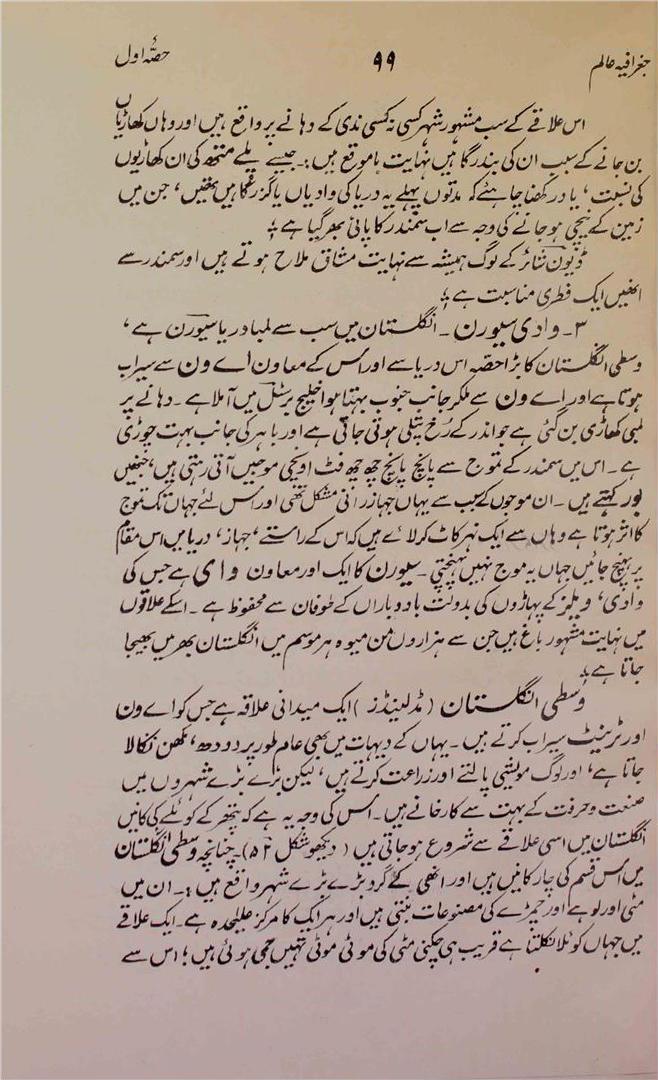 جغرافیہ عالم ۹۹ حصّۂ اول
اس علاقے کے سب مشہور شہر کسی نہ کسی ندی کے دہانے پر واقع ہیں اور وہاں کھاڑیاں
بن جانے کے سبب ان کی بندرگاہیں نہایت باموقع ہیں :۔ جیسے پلے متھ کی ان کھاڑیوں
کی نسبت ، یاد رکھنا چاہئے کہ مدتوں پہلے یہ دریا کی وادیاں یا گزرگاہیں تھیں ، جن میں
زمین کے نیچی ہو جانے کی وجہ سے اب سمندر کا پانی بھر گیا ہے ؛
ڈیون شائر کے لوگ ہمیشہ سے نہایت مشاق ملاح ہوتے ہیں اور سمندر سے
انھیں ایک فطری مناسبت ہے ؛
۳۔ وادی سیورن ۔ انگلستان میں سب سے لمبا دریا سیورن ہے ،
وسطی انگلستان کا بڑا حصّہ اس دریا سے اور اُس کے معاون اے ون سے سیراب
ہوتا ہے اور اے ون سے ملکر جانب جنوب بہتا ہوا خلیج برسٹل میں آ ملا ہے ۔ دہانے پر
لمبی کھاڑی بن گئی ہے جو اندر کے رُخ پتلی ہوتی جاتی ہے اور باہر کی جانب بہت چوڑی
ہے ۔ اس میں سمندر کے تموج سے پانچ پانچ چھ چھ فٹ اونچی موجیں آتی رہتی ہیں ، جنھیں
بور کہتے ہیں ۔ ان موجوں کے سبب سے یہاں جہاز رانی مشکل تھی اور اس لئے جہاں تک تموج
کا اثر ہوتا ہے وہاں سے ایک نہر کاٹ کر لائے ہیں کہ اس کے راستے ، جہاز ، دریا میں اس مقام
پر پہنچ جائیں جہاں یہ موج نہیں پہنچتی ۔ سیورن کا ایک اور معاون وائی ہے جس کی
وادی ، ویلز کے پہاڑوں کی بدولت باد و باراں کے طوفان سے محفوظ ہے ۔ اسکے علاقوں
میں نہایت مشہور باغ ہیں جن سے ہزاروں من میوہ ہر موسم میں انگلستان بھر میں بھیجا
جاتا ہے ؛
وسطی انگلستان ( مڈلینڈز ) ایک میدانی علاقہ ہے جس کو اے ون
اور ٹرینٹ سیراب کرتے ہیں ۔ یہاں کے دیہات میں بھی عام طور پر دودھ ، مکھن نکالا
جاتا ہے ، اور لوگ مویشی پالتے اور زراعت کرتے ہیں ، لیکن بڑے بڑے شہروں میں
صنعت و حرفت کے بہت سے کارخانے ہیں ۔ اس کی وجہ یہ ہے کہ پتھر کے کوئلے کی کانیں
انگلستان میں اسی علاقے سے شروع ہو جاتی ہیں ( دیکھو شکل ۵۲ )۔ چنانچہ وسطی انگلستان
میں اُس قسم کی چار کانیں ہیں اور انھی کے گرد بڑے بڑے شہر واقع ہیں :۔ ان میں
مٹی اور لوہے اور چمڑے کی مصنوعات بنتی ہیں اور ہر ایک کا مرکز علیٰحدہ ہے ۔ ایک علاقے
میں جہاں کوئلا نکلتا ہے قریب ہی چکنی مٹی کی موٹی موٹی تہیں جمی ہوئی ہیں ؛ اس سے